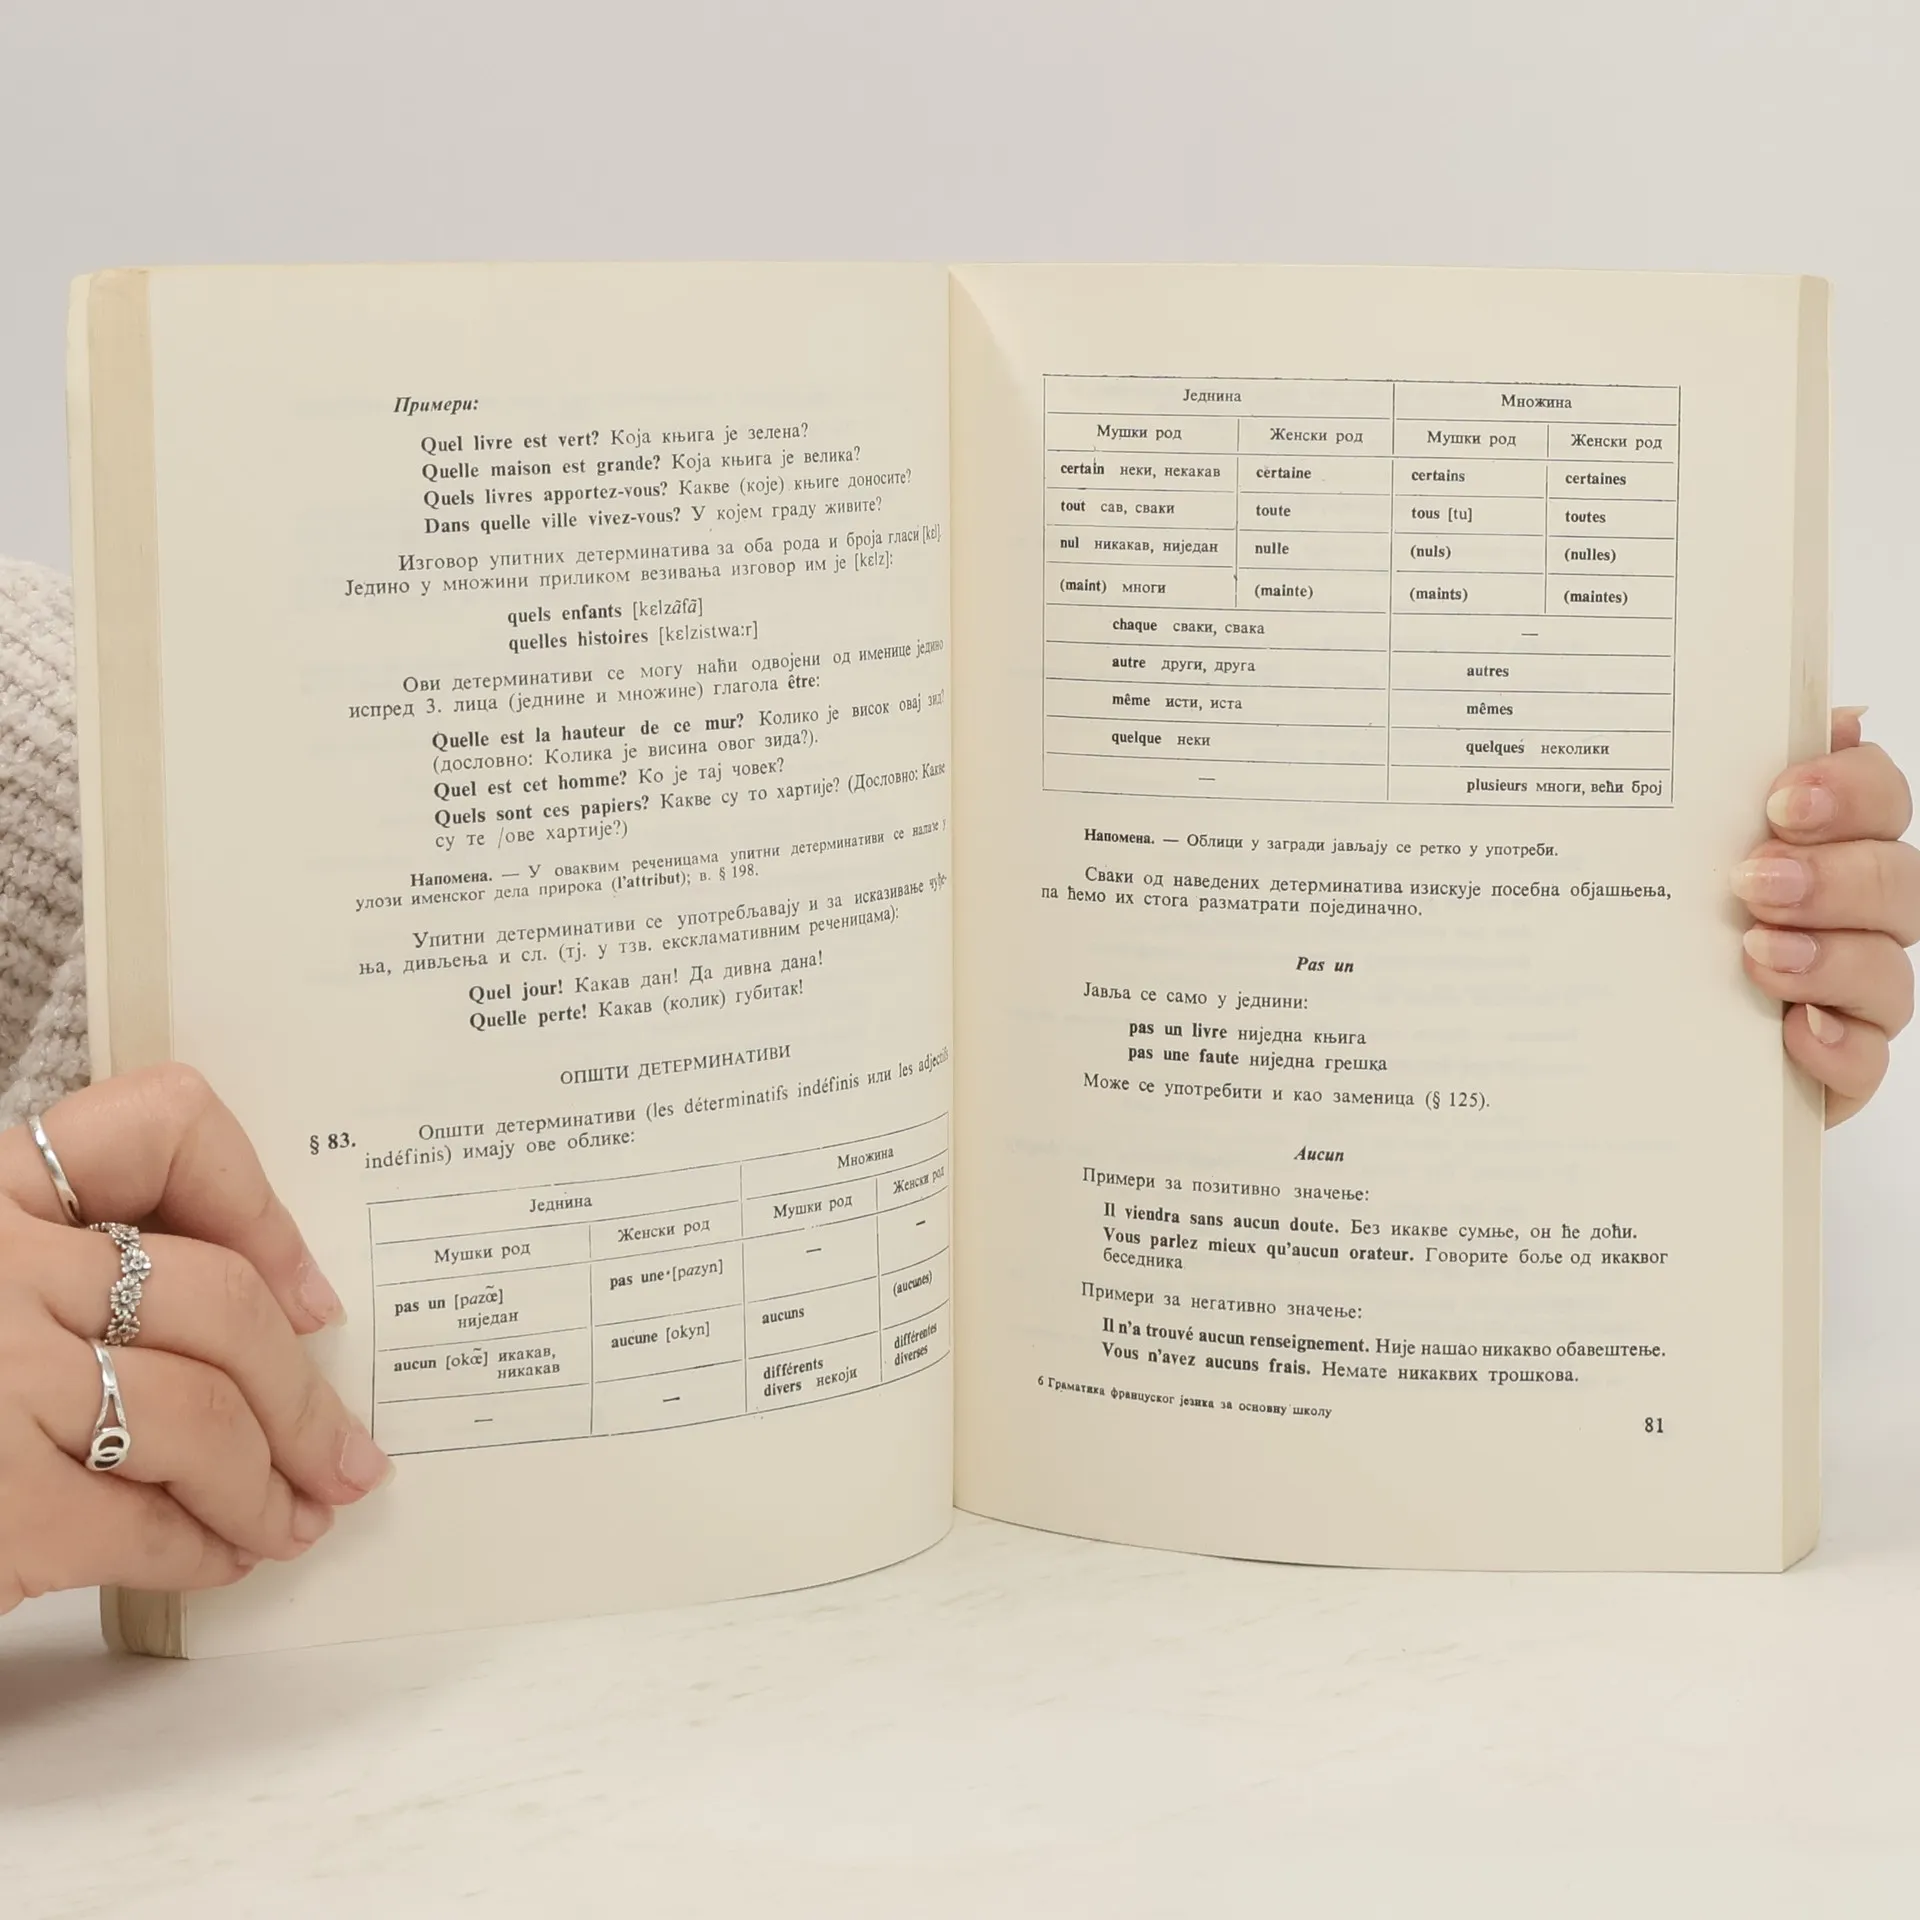 Примери:
Quel livre est vert? Која књига је зелена?
Quelle maison est grande? Која књига је велика?
Quels livres apportez-vous? Какве (које) књиге доносите?
Dans quelle ville vivez-vous? У којем граду живите?
Изговор упитних детерминатива за оба рода и броја гласи [kɛl].
Једино у множини приликом везивања изговор им је [kɛlz]:
quels enfants [kɛlzãfã]
quelles histoires [kɛlzistwa:r]
Ови детерминативи се могу наћи одвојени од именице једино
испред 3. лица (једнине и множине) глагола être:
Quelle est la hauteur de ce mur? Колико је висок овај зид?
(дословно: Колика је висина овог зида?).
Quel est cet homme? Ко је тај човек?
Quels sont ces papiers? Какве су то хартије? (Дословно: Какве
су те /ове хартије?)
Напомена. — У оваквим реченицама упитни детерминативи се налазе у
улози именског дела прирока (l'attribut); в. § 198.
Упитни детерминативи се употребљавају и за исказивање чуђе-
ња, дивљења и сл. (тј. у тзв. екскламативним реченицама):
Quel jour! Какав дан! Да дивна дана!
Quelle perte! Какав (колик) губитак!
ОПШТИ ДЕТЕРМИНАТИВИ
§ 83. Општи детерминативи (les déterminatifs indéfinis или les adjectifs
indéfinis) имају ове облике:
Једнина Множина
Мушки род Женски род Мушки род Женски род
pas un [pazœ̃] pas une [pazyn] — —
ниједан
aucun [okœ̃] икакав, aucune [okyn] aucuns (aucunes)
никакав
— — différents différentes
divers некоји diverses
Једнина Множина
Мушки род Женски род Мушки род Женски род
certain неки, некакав certaine certains certaines
tout сав, сваки toute tous [tu] toutes
nul никакав, ниједан nulle (nuls) (nulles)
(maint) многи (mainte) (maints) (maintes)
chaque сваки, свака —
autre други, друга autres
même исти, иста mêmes
quelque неки quelques неколики
— plusieurs многи, већи број
Напомена. — Облици у загради јављају се ретко у употреби.
Сваки од наведених детерминатива изискује посебна објашњења,
па ћемо их стога разматрати појединачно.
Pas un
Јавља се само у једнини:
pas un livre ниједна књига
pas une faute ниједна грешка
Може се употребити и као заменица (§ 125).
Aucun
Примери за позитивно значење:
Il viendra sans aucun doute. Без икакве сумње, он ће доћи.
Vous parlez mieux qu'aucun orateur. Говорите боље од икаквог
беседника.
Примери за негативно значење:
Il n'a trouvé aucun renseignement. Није нашао никакво обавештење.
Vous n'avez aucuns frais. Немате никаквих трошкова.
6 Граматика француског језика за основну школу
81